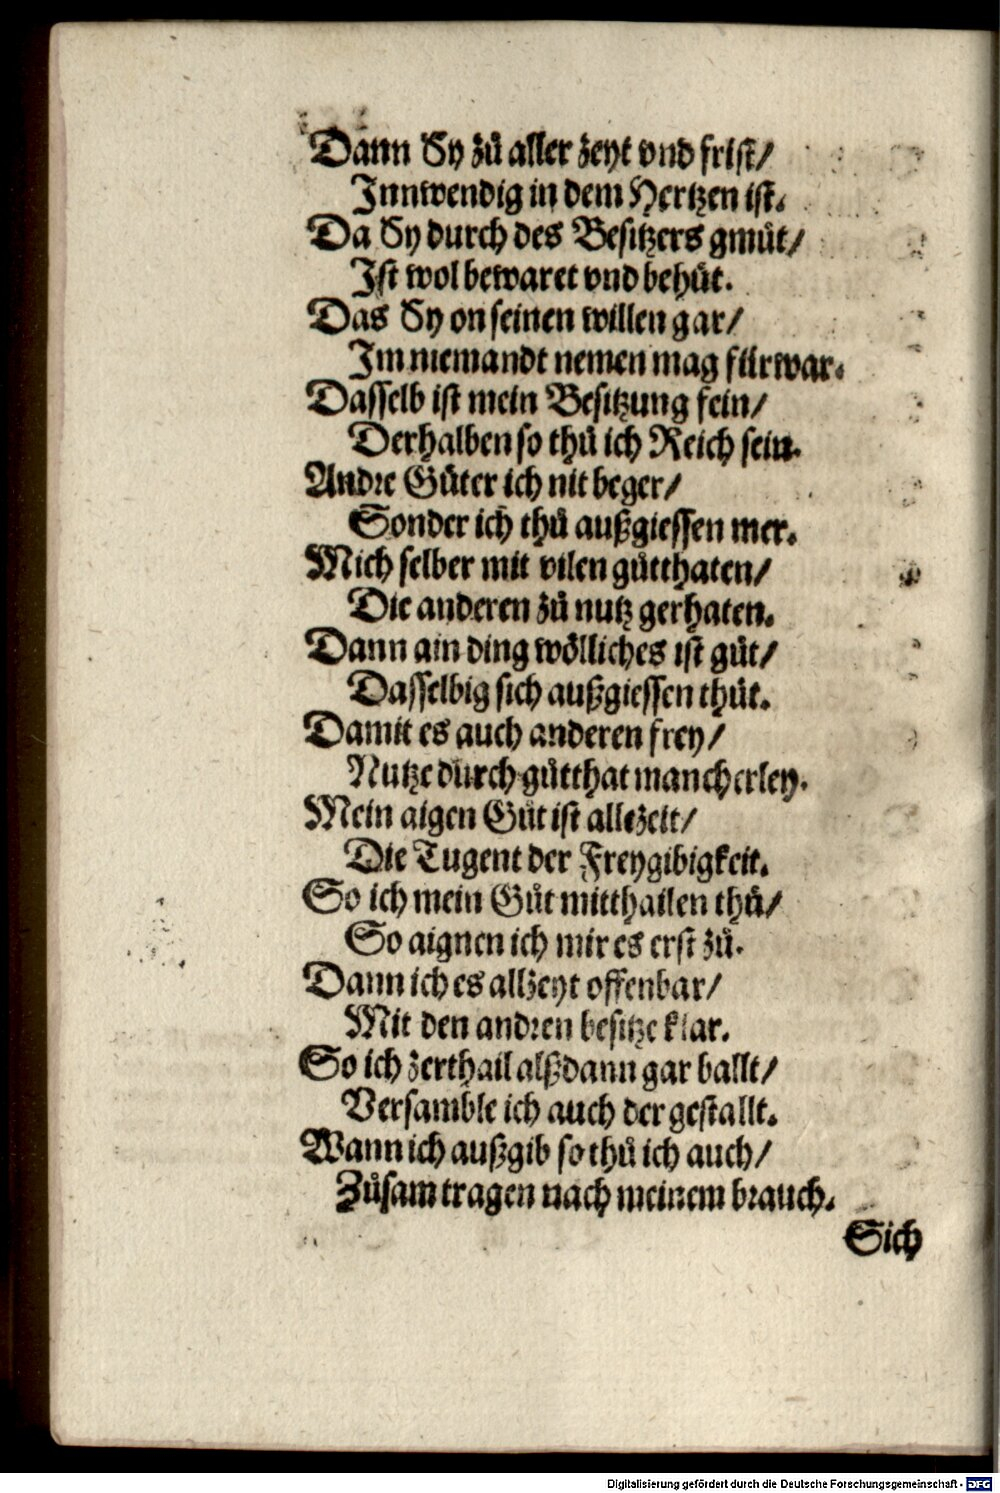 Dann Sy zů aller zeyt vnd frist/
Innwendig in dem Hertzen ist.
Da Sy durch des Besitzers gmüt/
Ist wol bewaret vnd behüt.
Das Sy on seinen willen gar/
Im niemandt nemen mag fürwar.
Dasselb ist mein Besitzung fein/
Derhalben so thů ich Reich sein.
Andre Güter ich nit beger/
Sonder ich thů außgiessen mer.
Mich selber mit vilen gůtthaten/
Die anderen zů nutz gerhaten.
Dann ain ding wölliches ist gůt/
Dasselbig sich außgiessen thůt.
Damit es auch anderen frey/
Nutze durch gůtthat mancherley.
Mein aigen Gůt ist allezeit/
Die Tugent der Freygibigkeit.
So ich mein Gůt mitthailen thů/
So aignen ich mir es erst zů.
Dann ich es allzeyt offenbar/
Mit den andren besitze klar.
So ich zerthail alßdann gar ballt/
Versamble ich auch der gestallt.
Wann ich außgib so thů ich auch/
Zůsam tragen nach meinem brauch.
Sich
Digitalisierung gefördert durch die Deutsche Forschungsgemeinschaft - DFG